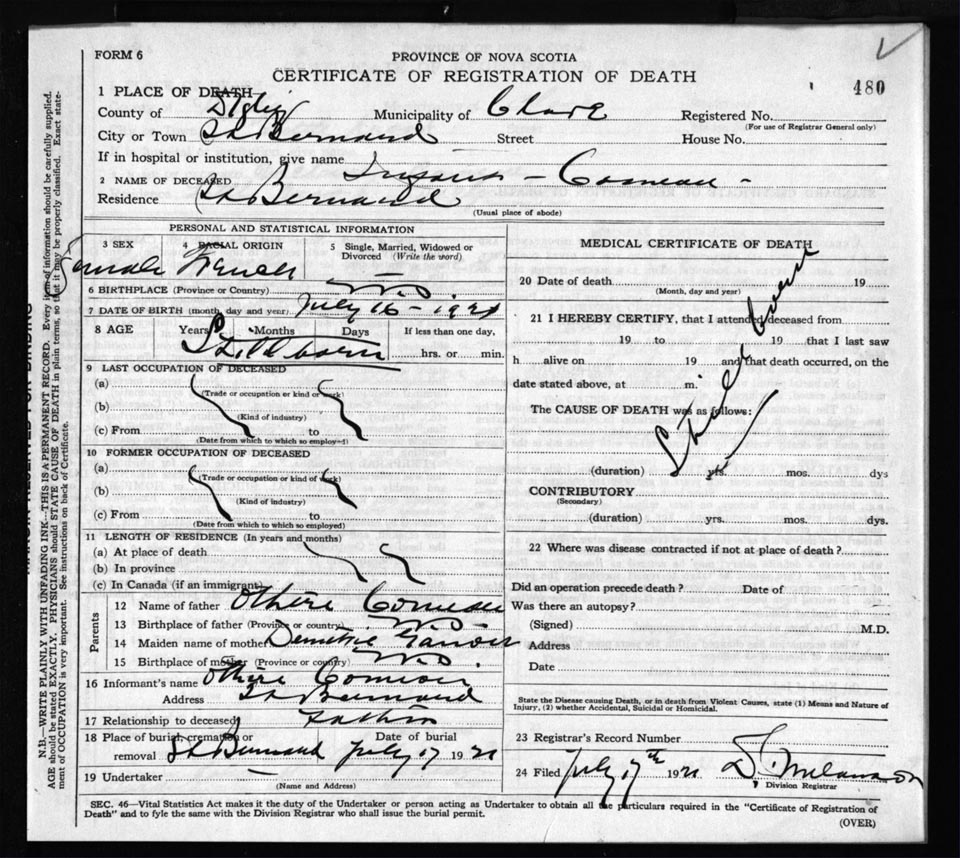 FORM 6
PROVINCE OF NOVA SCOTIA
CERTIFICATE OF REGISTRATION OF DEATH
480
1 PLACE OF DEATH
County of Digby Municipality of Clare Registered No.
(For use of Registrar General only)
City or Town St Bernard Street House No.
If in hospital or institution, give name
2 NAME OF DECEASED Comeau -
Residence St Bernard
(Usual place of abode)
PERSONAL AND STATISTICAL INFORMATION
3 SEX 4 RACIAL ORIGIN 5 Single, Married, Widowed or Divorced (Write the word)
Female French —
6 BIRTHPLACE (Province or Country) N.S.
7 DATE OF BIRTH (month, day and year) July 16 - 192
8 AGE Years Months Days If less than one day,
Stillborn hrs. or min.
9 LAST OCCUPATION OF DECEASED
(a)
(Trade or occupation or kind or work)
(b)
(Kind of industry)
(c) From to
(Date from which to which so employed)
10 FORMER OCCUPATION OF DECEASED
(a)
(Trade or occupation or kind of work)
(b)
(Kind of industry)
(c) From to
(Date from which to which so employed)
11 LENGTH OF RESIDENCE (In years and months)
(a) At place of death
(b) In province
(c) In Canada (if an immigrant)
Parents
12 Name of father Comeau
13 Birthplace of father (Province or country) N.S.
14 Maiden name of mother
15 Birthplace of mother (Province or country) N.S.
16 Informant's name Comeau
Address St Bernard
17 Relationship to deceased Father
18 Place of burial, cremation or removal St Bernard Date of burial July 17 192
19 Undertaker —
(Name and Address)
MEDICAL CERTIFICATE OF DEATH
20 Date of death 19
(Month, day and year)
21 I HEREBY CERTIFY, that I attended deceased from
19 to 19 that I last saw
h alive on 19 and that death occurred, on the
date stated above, at m.
The CAUSE OF DEATH was as follows:
Still born
(duration) yrs. mos. dys
CONTRIBUTORY
(Secondary)
(duration) yrs. mos. dys.
22 Where was disease contracted if not at place of death?
Did an operation precede death? Date of
Was there an autopsy?
(Signed) M.D.
Address
Date
State the Disease causing Death, or in death from Violent Causes, state (1) Means and Nature of
Injury, (2) whether Accidental, Suicidal or Homicidal.
23 Registrar's Record Number
24 Filed July 17th 192
Division Registrar
SEC. 46—Vital Statistics Act makes it the duty of the Undertaker or person acting as Undertaker to obtain all the particulars required in the "Certificate of Registration of
Death" and to fyle the same with the Division Registrar who shall issue the burial permit.
(OVER)
N.B.—WRITE PLAINLY WITH UNFADING INK—THIS IS A PERMANENT RECORD. Every item of information should be carefully supplied.
AGE should be stated EXACTLY. PHYSICIANS should STATE CAUSE OF DEATH in plain terms, so that it may be properly classified. Exact state-
ment of OCCUPATION is very important. See instructions on back of Certificate.